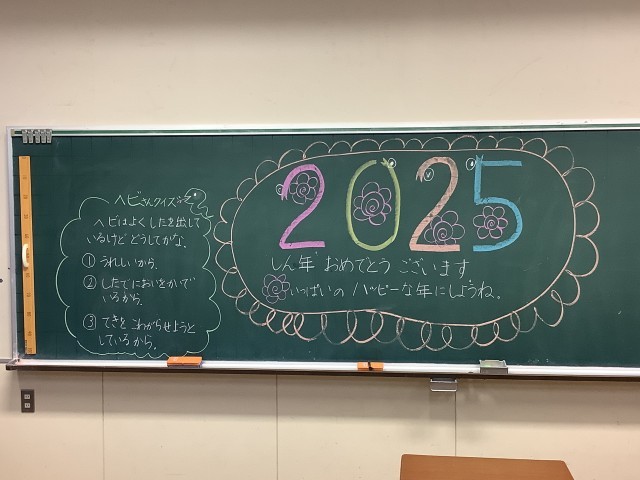 ヘビさんクイズ
ヘビはよくしたを出して
いるけど どうしてかな。
① うれしいから。
② したでにおいをかいで
いるから。
③ てきを こわがらせようと
しているから。
2025
しん年 おめでとう ございます
いっぱいの ハッピーな年にしようね。